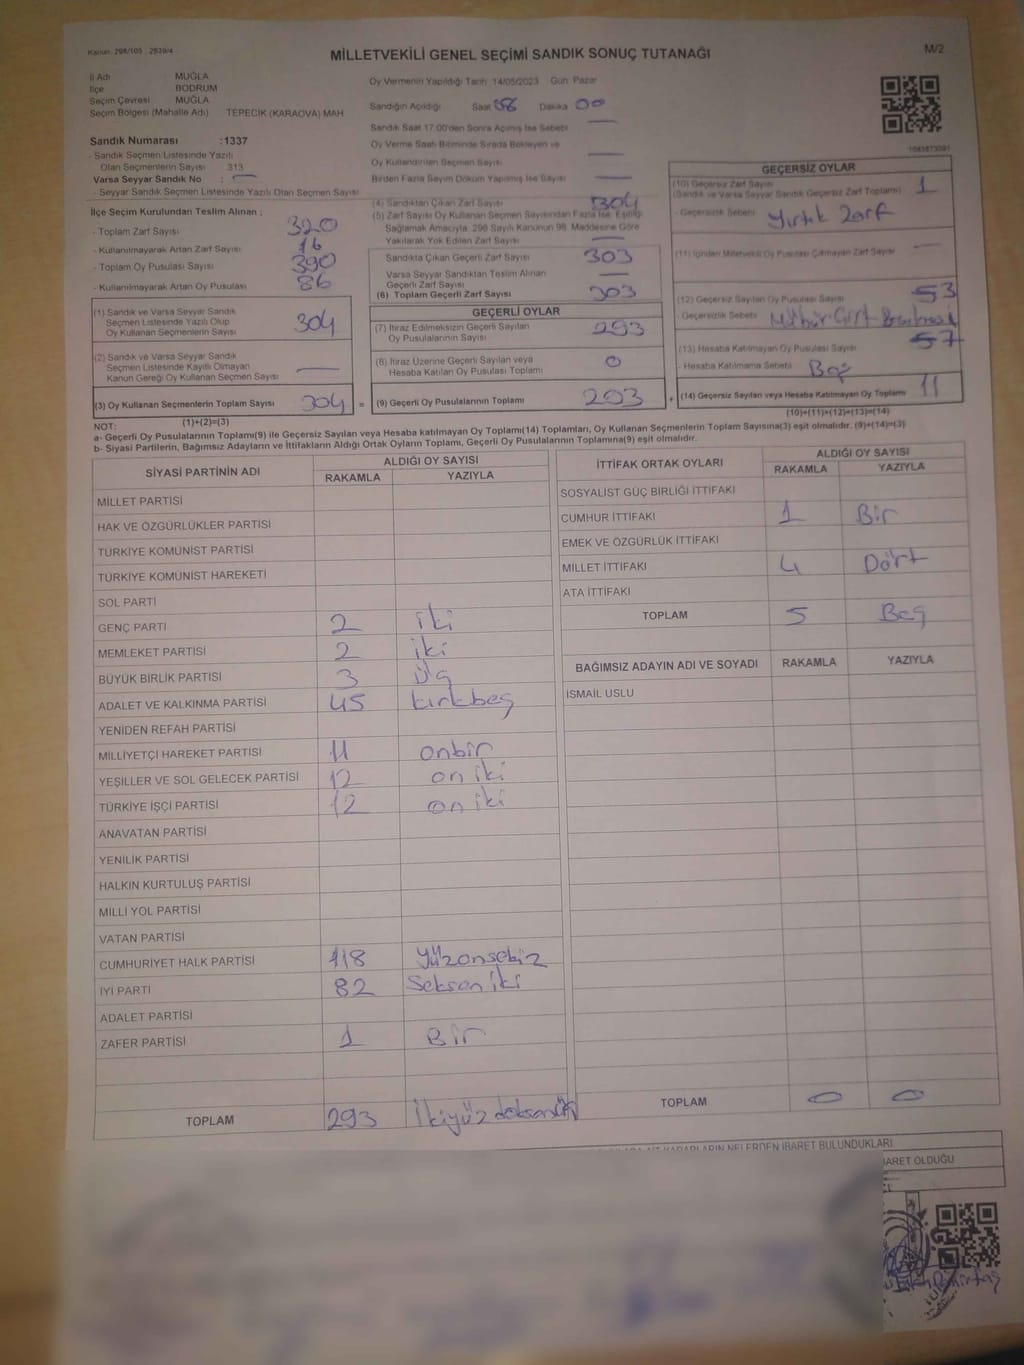 Kanun: 298/105 , 2839/4
MİLLETVEKİLİ GENEL SEÇİMİ SANDIK SONUÇ TUTANAĞI
M/2
İl Adı MUĞLA
İlçe BODRUM
Seçim Çevresi MUĞLA
Seçim Bölgesi (Mahalle Adı) TEPECİK (KARAOVA) MAH
Sandık Numarası :1337
- Sandık Seçmen Listesinde Yazılı
Olan Seçmenlerin Sayısı 313
Varsa Seyyar Sandık No : —
- Seyyar Sandık Seçmen Listesinde Yazılı Olan Seçmen Sayısı
İlçe Seçim Kurulundan Teslim Alınan ;
- Toplam Zarf Sayısı 320
- Kullanılmayarak Artan Zarf Sayısı 16
- Toplam Oy Pusulası Sayısı 390
- Kullanılmayarak Artan Oy Pusulası 86
(1) Sandık ve Varsa Seyyar Sandık
Seçmen Listesinde Yazılı Olup
Oy Kullanan Seçmenlerin Sayısı 304
(2) Sandık ve Varsa Seyyar Sandık
Seçmen Listesinde Kayıtlı Olmayan
Kanun Gereği Oy Kullanan Seçmen Sayısı —
(3) Oy Kullanan Seçmenlerin Toplam Sayısı 304 =
(1)+(2)=(3)
Oy Vermenin Yapıldığı Tarih 14/05/2023 Gün: Pazar
Sandığın Açıldığı Saat Dakika 00
Sandık Saat 17:00'den Sonra Açılmış İse Sebebi —
Oy Verme Saati Bitiminde Sırada Bekleyen ve
Oy Kullandırılan Seçmen Sayısı —
Birden Fazla Sayım Döküm Yapılmış İse Sayısı —
(4) Sandıktan Çıkan Zarf Sayısı 304
(5) Zarf Sayısı Oy Kullanan Seçmen Sayısından Fazla İse, Eşitliği
Sağlamak Amacıyla, 298 Sayılı Kanunun 98. Maddesine Göre
Yakılarak Yok Edilen Zarf Sayısı —
Sandıkta Çıkan Geçerli Zarf Sayısı 303
Varsa Seyyar Sandıktan Teslim Alınan
Geçerli Zarf Sayısı —
(6) Toplam Geçerli Zarf Sayısı 303
GEÇERLİ OYLAR
(7) İtiraz Edilmeksizin Geçerli Sayılan
Oy Pusulalarının Sayısı 293
(8) İtiraz Üzerine Geçerli Sayılan veya
Hesaba Katılan Oy Pusulası Toplamı 0
(9) Geçerli Oy Pusulalarının Toplamı 293 +
GEÇERSİZ OYLAR
(10) Geçersiz Zarf Sayısı
(Sandık ve Varsa Seyyar Sandık Geçersiz Zarf Toplamı) 1
- Geçersizlik Sebebi: Yırtık Zarf
(11) İçinden Milletvekili Oy Pusulası Çıkmayan Zarf Sayısı —
(12) Geçersiz Sayılan Oy Pusulası Sayısı
- Geçersizlik Sebebi:
(13) Hesaba Katılmayan Oy Pusulası Sayısı
- Hesaba Katılmama Sebebi Boş
(14) Geçersiz Sayılan veya Hesaba Katılmayan Oy Toplamı 11
(10)+(11)+(12)+(13)=(14)
NOT:
a- Geçerli Oy Pusulalarının Toplamı(9) ile Geçersiz Sayılan veya Hesaba katılmayan Oy Toplamı(14) Toplamları, Oy Kullanan Seçmenlerin Toplam Sayısına(3) eşit olmalıdır. (9)+(14)=(3)
b- Siyasi Partilerin, Bağımsız Adayların ve İttifakların Aldığı Ortak Oyların Toplamı, Geçerli Oy Pusulalarının Toplamına(9) eşit olmalıdır.
SİYASİ PARTİNİN ADI
ALDIĞI OY SAYISI
RAKAMLA YAZIYLA
MİLLET PARTİSİ
HAK VE ÖZGÜRLÜKLER PARTİSİ
TÜRKİYE KOMÜNİST PARTİSİ
TÜRKİYE KOMÜNİST HAREKETİ
SOL PARTİ
GENÇ PARTİ 2 iki
MEMLEKET PARTİSİ 2 iki
BÜYÜK BİRLİK PARTİSİ 3 Üç
ADALET VE KALKINMA PARTİSİ 45 kırkbeş
YENİDEN REFAH PARTİSİ
MİLLİYETÇİ HAREKET PARTİSİ 11 onbir
YEŞİLLER VE SOL GELECEK PARTİSİ 12 on iki
TÜRKİYE İŞÇİ PARTİSİ 12 on iki
ANAVATAN PARTİSİ
YENİLİK PARTİSİ
HALKIN KURTULUŞ PARTİSİ
MİLLİ YOL PARTİSİ
VATAN PARTİSİ
CUMHURİYET HALK PARTİSİ 118 Yüzonsekiz
İYİ PARTİ 82 Seksen iki
ADALET PARTİSİ
ZAFER PARTİSİ 1 Bir
TOPLAM 293 İkiyüz doksanüç
İTTİFAK ORTAK OYLARI
ALDIĞI OY SAYISI
RAKAMLA YAZIYLA
SOSYALİST GÜÇ BİRLİĞİ İTTİFAKI
CUMHUR İTTİFAKI 1 Bir
EMEK VE ÖZGÜRLÜK İTTİFAKI
MİLLET İTTİFAKI 4 Dört
ATA İTTİFAKI
TOPLAM 5 Beş
BAĞIMSIZ ADAYIN ADI VE SOYADI RAKAMLA YAZIYLA
İSMAİL USLU
TOPLAM 0 0
KARARLARIN NELERDEN İBARET BULUNDUKLARI
İBARET OLDUĞU